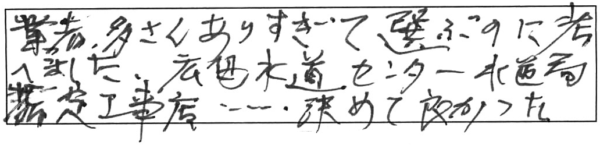 業者、多さんありすぎて選ぶのに考
へました、広島水道センター水道局
指定工事店……決めて良かった